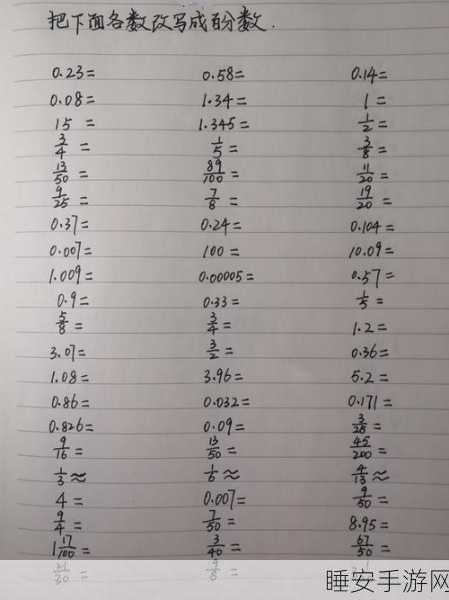 把下面各数改写成百分数.
0.23= 0.58= 0.14=
0.08= 1.34= 1=
15 = 1.345= 1/2=
3/4 = 1/5= 3/8=
13/50= 89/100= 11/20=
9/25= 7/8= 19/20=
0.37= 0.24= 0.104=
0.007= 100= 10.09=
1.009= 0.00005= 0.57=
0.9= 0.33= 1/5=
5/8= 3/4= 1.2=
3.07= 3/2= 0.36=
1.08= 3.96= 5.2=
0.86= 0.032= 0.171=
0.826= 0.09= 3/25=
9/16= 13/50= 45/200=
1/3≈ 1/6≈ 4/13≈
4= 0.007= 9/50=
9/4= 7/50= 8.95=
1 17/100= 3/40= 67/50=
21/30= =
睡安手游网